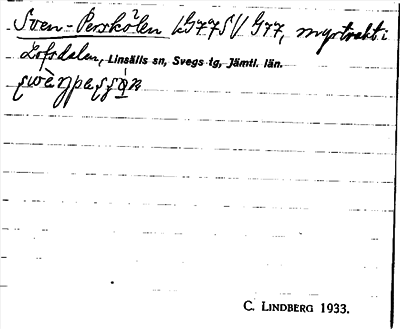 Sven-Perskölen kG77S // G77, myrtrakt i
Lofsdalen, Linsälls sn, Svegs tg, Jämtl. län.
C. LINDBERG 1933.